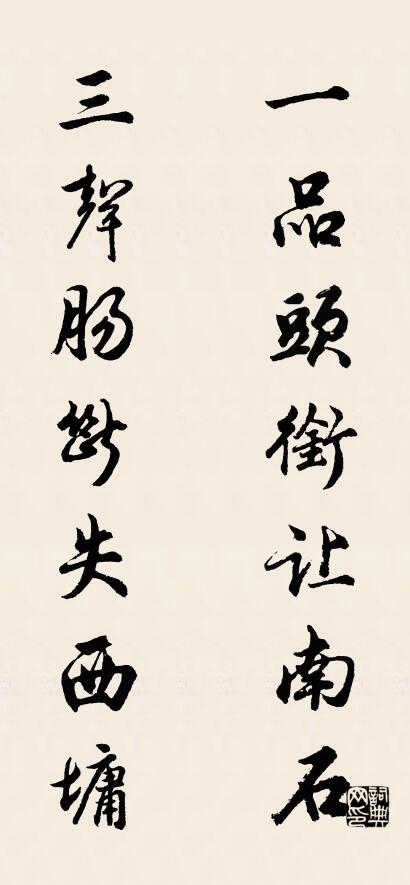 一品頭銜让南石
三聲肠斷失西墉
詞典网印